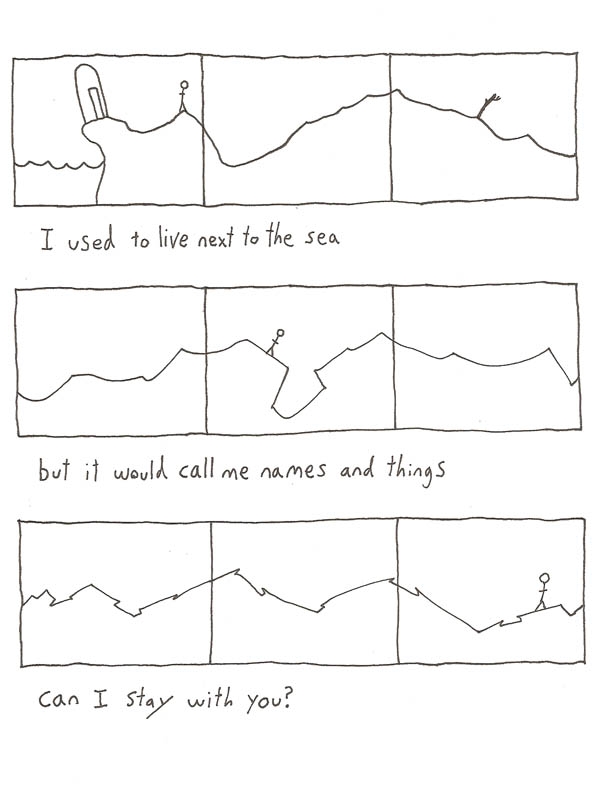 I used to live next to the sea
but it would call me names and things
can I stay with you?